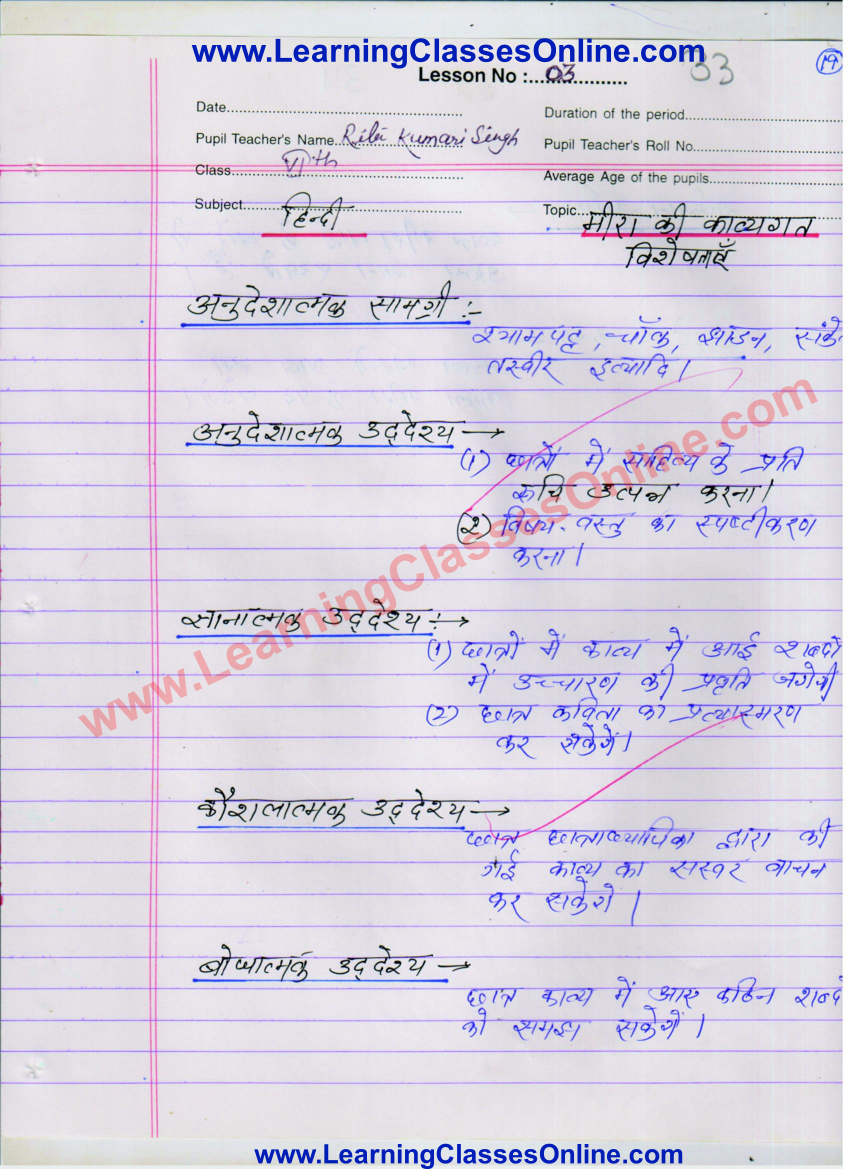 www.LearningClassesOnline.com
Lesson No :..03.............. 33 19
Date................................................ Duration of the period....................
Pupil Teacher's Name Ribi Kumari Singh Pupil Teacher's Roll No..................
Class VIth Average Age of the pupils...............
Subject हिन्दी Topic मीरा की काव्यगत
विशेषताएँ
अनुदेशात्मक सामग्री :-
श्यामपट्ट, चॉक, झाडन, संके
तस्वीर इत्यादि।
अनुदेशात्मक उद्देश्य →
(1) छात्रों में साहित्य के प्रति
रूचि उत्पन्न करना।
(2) विषय-वस्तु का स्पष्टीकरण
करना।
ज्ञानात्मक उद्देश्य :→
(1) छात्रों में काव्य में आई शब्दों
में उच्चारण की प्रवृति जगेगी
(2) छात्र कविता का प्रत्यास्मरण
कर सकेगें।
कौशलात्मक उद्देश्य →
छात्र छात्राध्यापिका द्वारा की
गई काव्य का सस्वर वाचन
कर सकेगे।
बोधात्मक उद्देश्य →
छात्र काव्य में आए कठिन शब्दो
को समझ सकेगें।
www.LearningClassesOnline.com
www.LearningClassesOnline.com